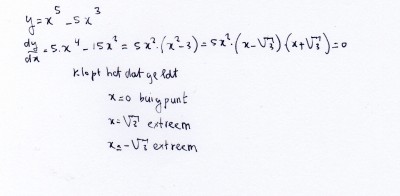 y = x^5 - 5x^3
dy/dx = 5.x^4 - 15x^2 = 5x^2.(x^2-3) = 5x^2.(x-√3).(x+√3) = 0
klopt het dat geldt
x=0 buigpunt
x=√3 extreem
x=-√3 extreem